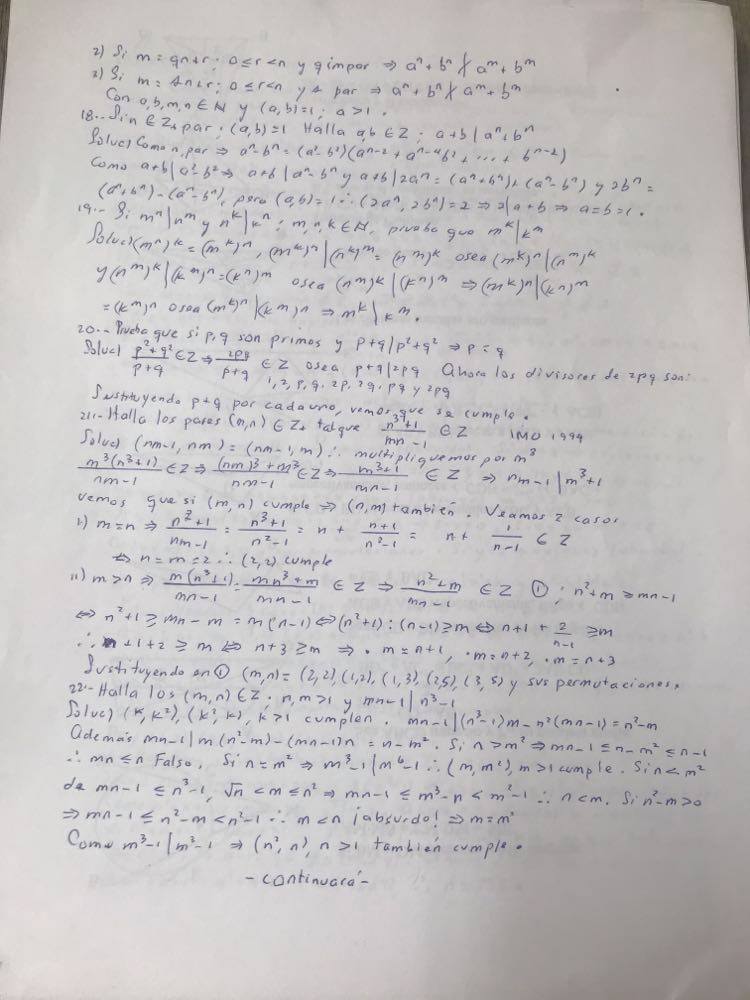 2) Si m = qn+r; 0≤r<n y q impar ⇒ aⁿ+bⁿ ∤ aᵐ+bᵐ
3) Si m = sn+r; 0≤r<n y s par ⇒ aⁿ+bⁿ ∤ aᵐ+bᵐ
Con a,b,m,n ∈ N y (a,b)=1; a>1.
18.- Si n ∈ Z₊ par; (a,b)=1 Halla a,b ∈ Z; a+b | aⁿ+bⁿ
Soluc) Como n, par ⇒ aⁿ-bⁿ = (a²-b²)(aⁿ⁻²+aⁿ⁻⁴b²+...+bⁿ⁻²)
Como a+b | a²-b² ⇒ a+b | aⁿ-bⁿ y a+b | 2aⁿ = (aⁿ+bⁿ)+(aⁿ-bⁿ) y 2bⁿ =
(aⁿ+bⁿ)-(aⁿ-bⁿ), pero (a,b)=1 ∴ (2aⁿ, 2bⁿ)=2 ⇒ 2|a+b ⇒ a=b=1.
19.- Si mⁿ|nᵐ y nᵏ|kⁿ; m,n,k ∈ N, prueba que mᵏ|kᵐ
Soluc) (mⁿ)ᵏ = (mᵏ)ⁿ, (mᵏ)ⁿ|(nᵏ)ᵐ = (nᵐ)ᵏ osea (mᵏ)ⁿ|(nᵐ)ᵏ
y (nᵐ)ᵏ|(kᵐ)ⁿ = (kⁿ)ᵐ osea (nᵐ)ᵏ|(kⁿ)ᵐ ⇒ (mᵏ)ⁿ|(kⁿ)ᵐ
= (kᵐ)ⁿ osea (mᵏ)ⁿ|(kᵐ)ⁿ ⇒ mᵏ|kᵐ.
20.- Prueba que si p,q son primos y p+q|p²+q² ⇒ p=q
Soluc) (p²+q²)/(p+q) ∈ Z ⇒ 2pq/(p+q) ∈ Z osea p+q|2pq Ahora los divisores de 2pq son:
1, 2, p, q, 2p, 2q, pq y 2pq
Sustituyendo p+q por cada uno, vemos que se cumple.
21.- Halla los pares (m,n) ∈ Z₊ tal que (n³+1)/(mn-1) ∈ Z IMO 1994
Soluc) (nm-1, nm) = (nm-1, m) ∴ multipliquemos por m³
m³(n³+1)/(nm-1) ∈ Z ⇒ ((nm)³+m³)/(nm-1) ∈ Z ⇒ (m³+1)/(mn-1) ∈ Z ⇒ nm-1 | m³+1
vemos que si (m,n) cumple ⇒ (n,m) también. Veamos 2 casos
i) m=n ⇒ (n³+1)/(nm-1) = (n³+1)/(n²-1) = n + (n+1)/(n²-1) = n + 1/(n-1) ∈ Z
⇔ n=m=2 ∴ (2,2) cumple
ii) m>n ⇒ m(n³+1)/(mn-1) = (mn³+m)/(mn-1) ∈ Z ⇒ (n²+m)/(mn-1) ∈ Z ①; n²+m ≥ mn-1
⇔ n²+1 ≥ mn-m = m(n-1) ⇔ (n²+1):(n-1) ≥ m ⇔ n+1 + 2/(n-1) ≥ m
∴ n+1+2 ≥ m ⇔ n+3 ≥ m ⇒ · m=n+1, · m=n+2, · m=n+3
Sustituyendo en ① (m,n) = (2,2), (1,2), (1,3), (2,5), (3,5) y sus permutaciones.
22.- Halla los (m,n) ∈ Z; n,m>1 y mn-1 | n³-1
Soluc) (k,k²), (k²,k), k>1 cumplen. mn-1|(n³-1)m-n²(mn-1) = n²-m
Además mn-1|m(n²-m)-(mn-1)n = n-m². Si n>m² ⇒ mn-1 ≤ n-m² ≤ n-1
∴ mn≤n Falso. Si n=m² ⇒ m³-1|m⁶-1 ∴ (m,m²), m>1 cumple. Si n<m²
de mn-1 ≤ n³-1, √n < m ≤ n² ⇒ mn-1 ≤ m²-n < m²-1 ∴ n<m. Si n²-m>0
⇒ mn-1 ≤ n²-m < n²-1 ∴ m<n ¡absurdo! ⇒ m=n²
Como n³-1|n³-1 ⇒ (n²,n), n>1 también cumple.
-continuará-